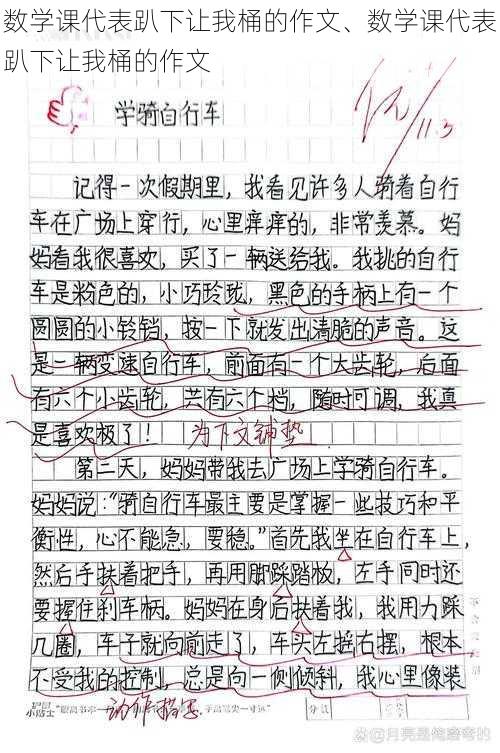 数学课代表趴下让我桶的作文、数学课代表
趴下让我桶的作文
优
11.3
学骑自行车
记得一次假期里，我看见许多人骑着自行
车在广场上穿行，心里痒痒的，非常羡慕。妈
妈看我很喜欢，买了一辆送给我。我挑的自行
车是粉色的，小巧玲珑，黑色的手柄上有一个
圆圆的小铃铛，按一下就发出清脆的声音。这
是一辆变速自行车，前面有一个大齿轮，后面
有六个小齿轮，共有六个档，随时可调，我真
是喜欢极了！
为下文铺垫
第二天，妈妈带我去广场上学骑自行车。
妈妈说：“骑自行车最主要是掌握一些技巧和平
衡性，心不能急，要稳。”首先我坐在自行车上，
然后手扶着把手，再用脚踩踏板，左手同时还
要握住刹车柄。妈妈在身后扶着我，我用力踩
几圈，车子就向前走了，车头左摇右摆，根本
不受我的控制，总是向一侧倾斜，我心里像装
动作描写
小贴士